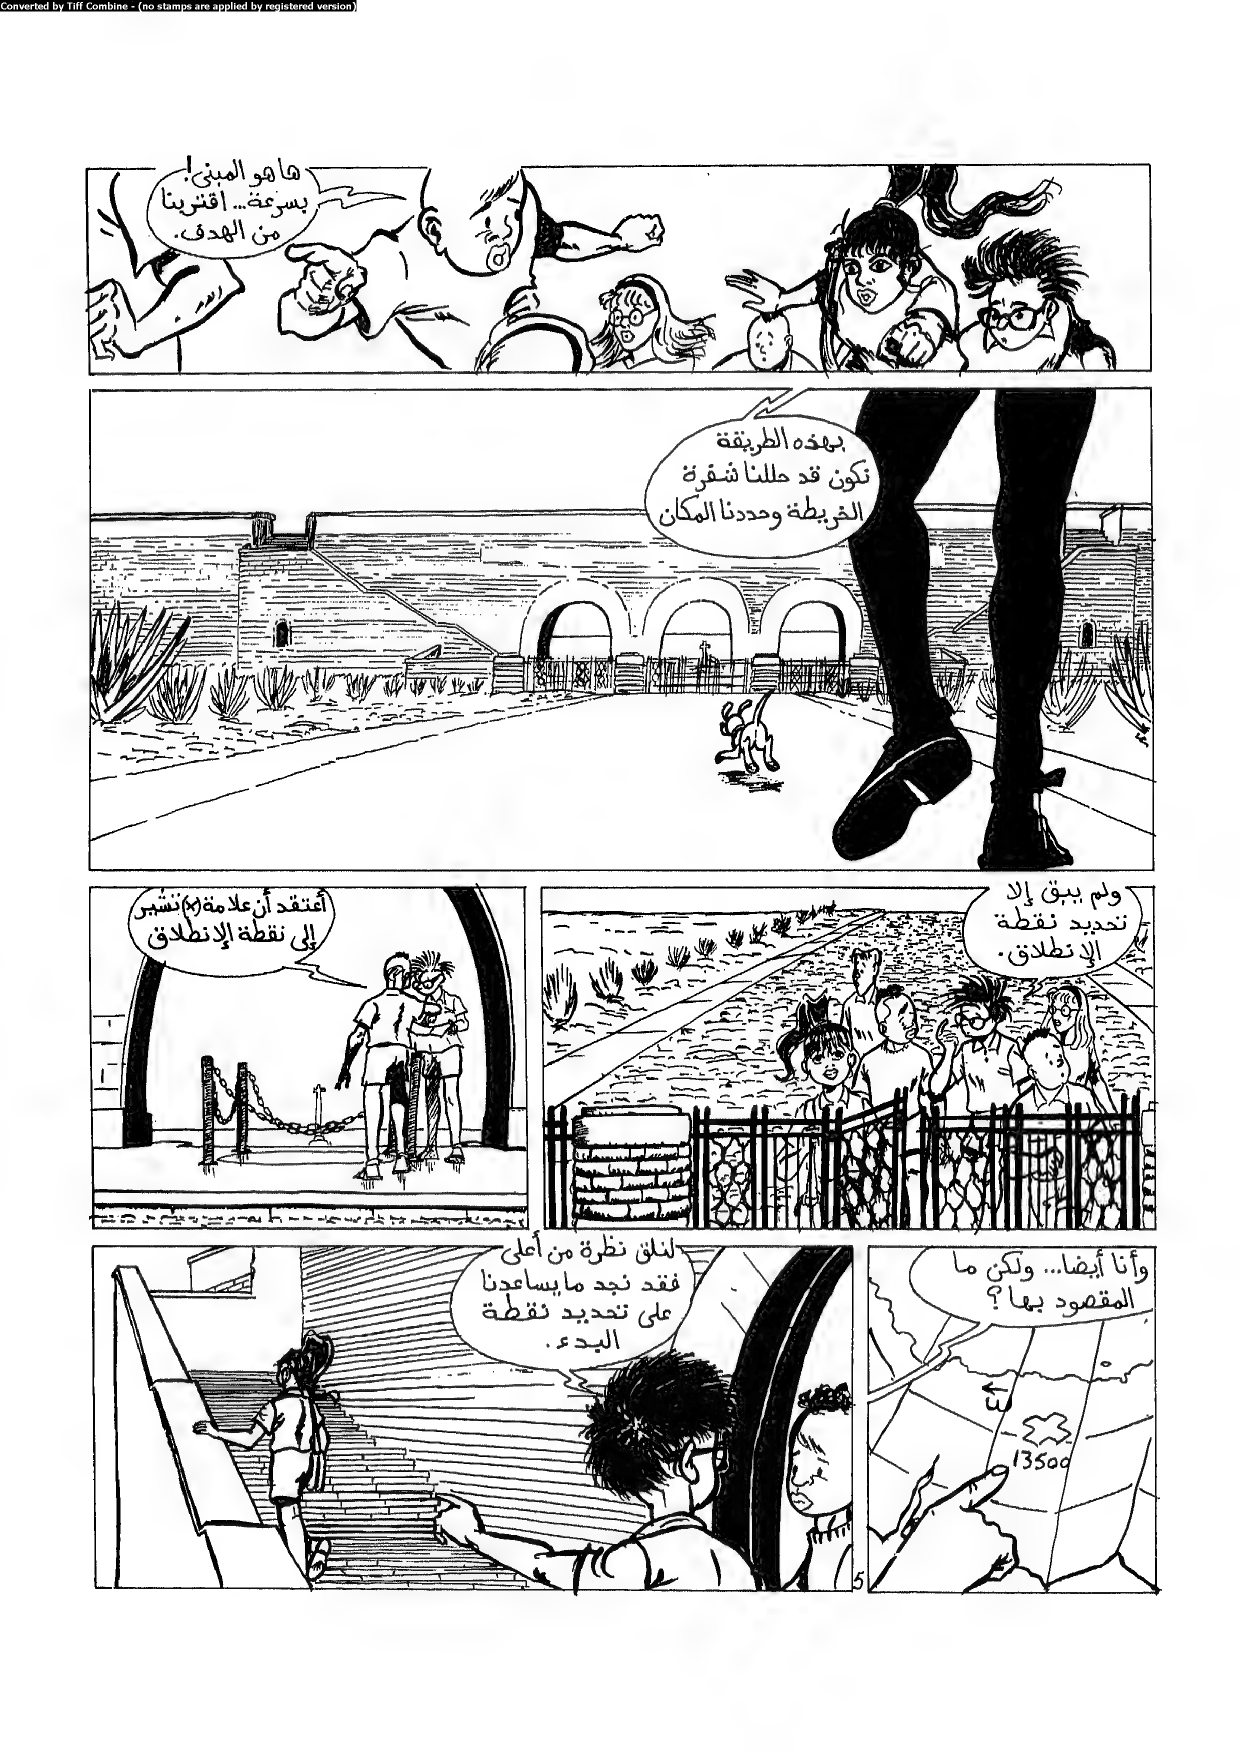 Converted by Tiff Combine - (no stamps are applied by registered version)
ها هو المبنى!
بسرعة... اقتربنا
من الهدف.
بهذه الطريقة
نكون قد حللنا شفرة
الخريطة وحددنا المكان
ولم يبق إلا
تحديد نقطة
الإنطلاق.
أعتقد أن علامة (x) تشير
إلى نقطة الإنطلاق
وأنا أيضا... ولكن ما
المقصود بها؟
13500
لنلق نظرة من أعلى
فقد نجد ما يساعدنا
على تحديد نقطة
البدء.
5